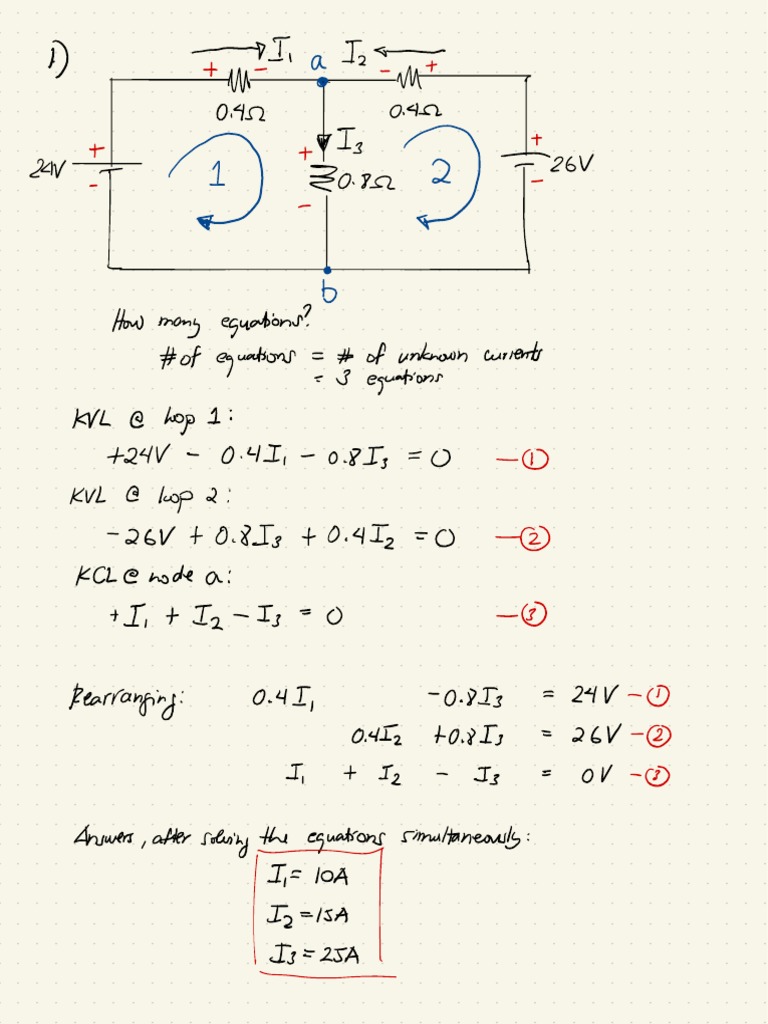 1)
I₁ a I₂
+ - - +
0.4Ω 0.4Ω
24V + - 1 I₃ + - 0.8Ω 2 + - 26V
b
How many equations?
# of equations = # of unknown currents
= 3 equations
KVL @ loop 1:
+24V - 0.4I₁ - 0.8I₃ = 0 —①
KVL @ loop 2:
-26V + 0.8I₃ + 0.4I₂ = 0 —②
KCL @ node a:
+I₁ + I₂ - I₃ = 0 —③
Rearranging: 0.4I₁ -0.8I₃ = 24V —①
0.4I₂ +0.8I₃ = 26V —②
I₁ + I₂ - I₃ = 0V —③
Answers, after solving the equations simultaneously:
I₁ = 10A
I₂ = 15A
I₃ = 25A